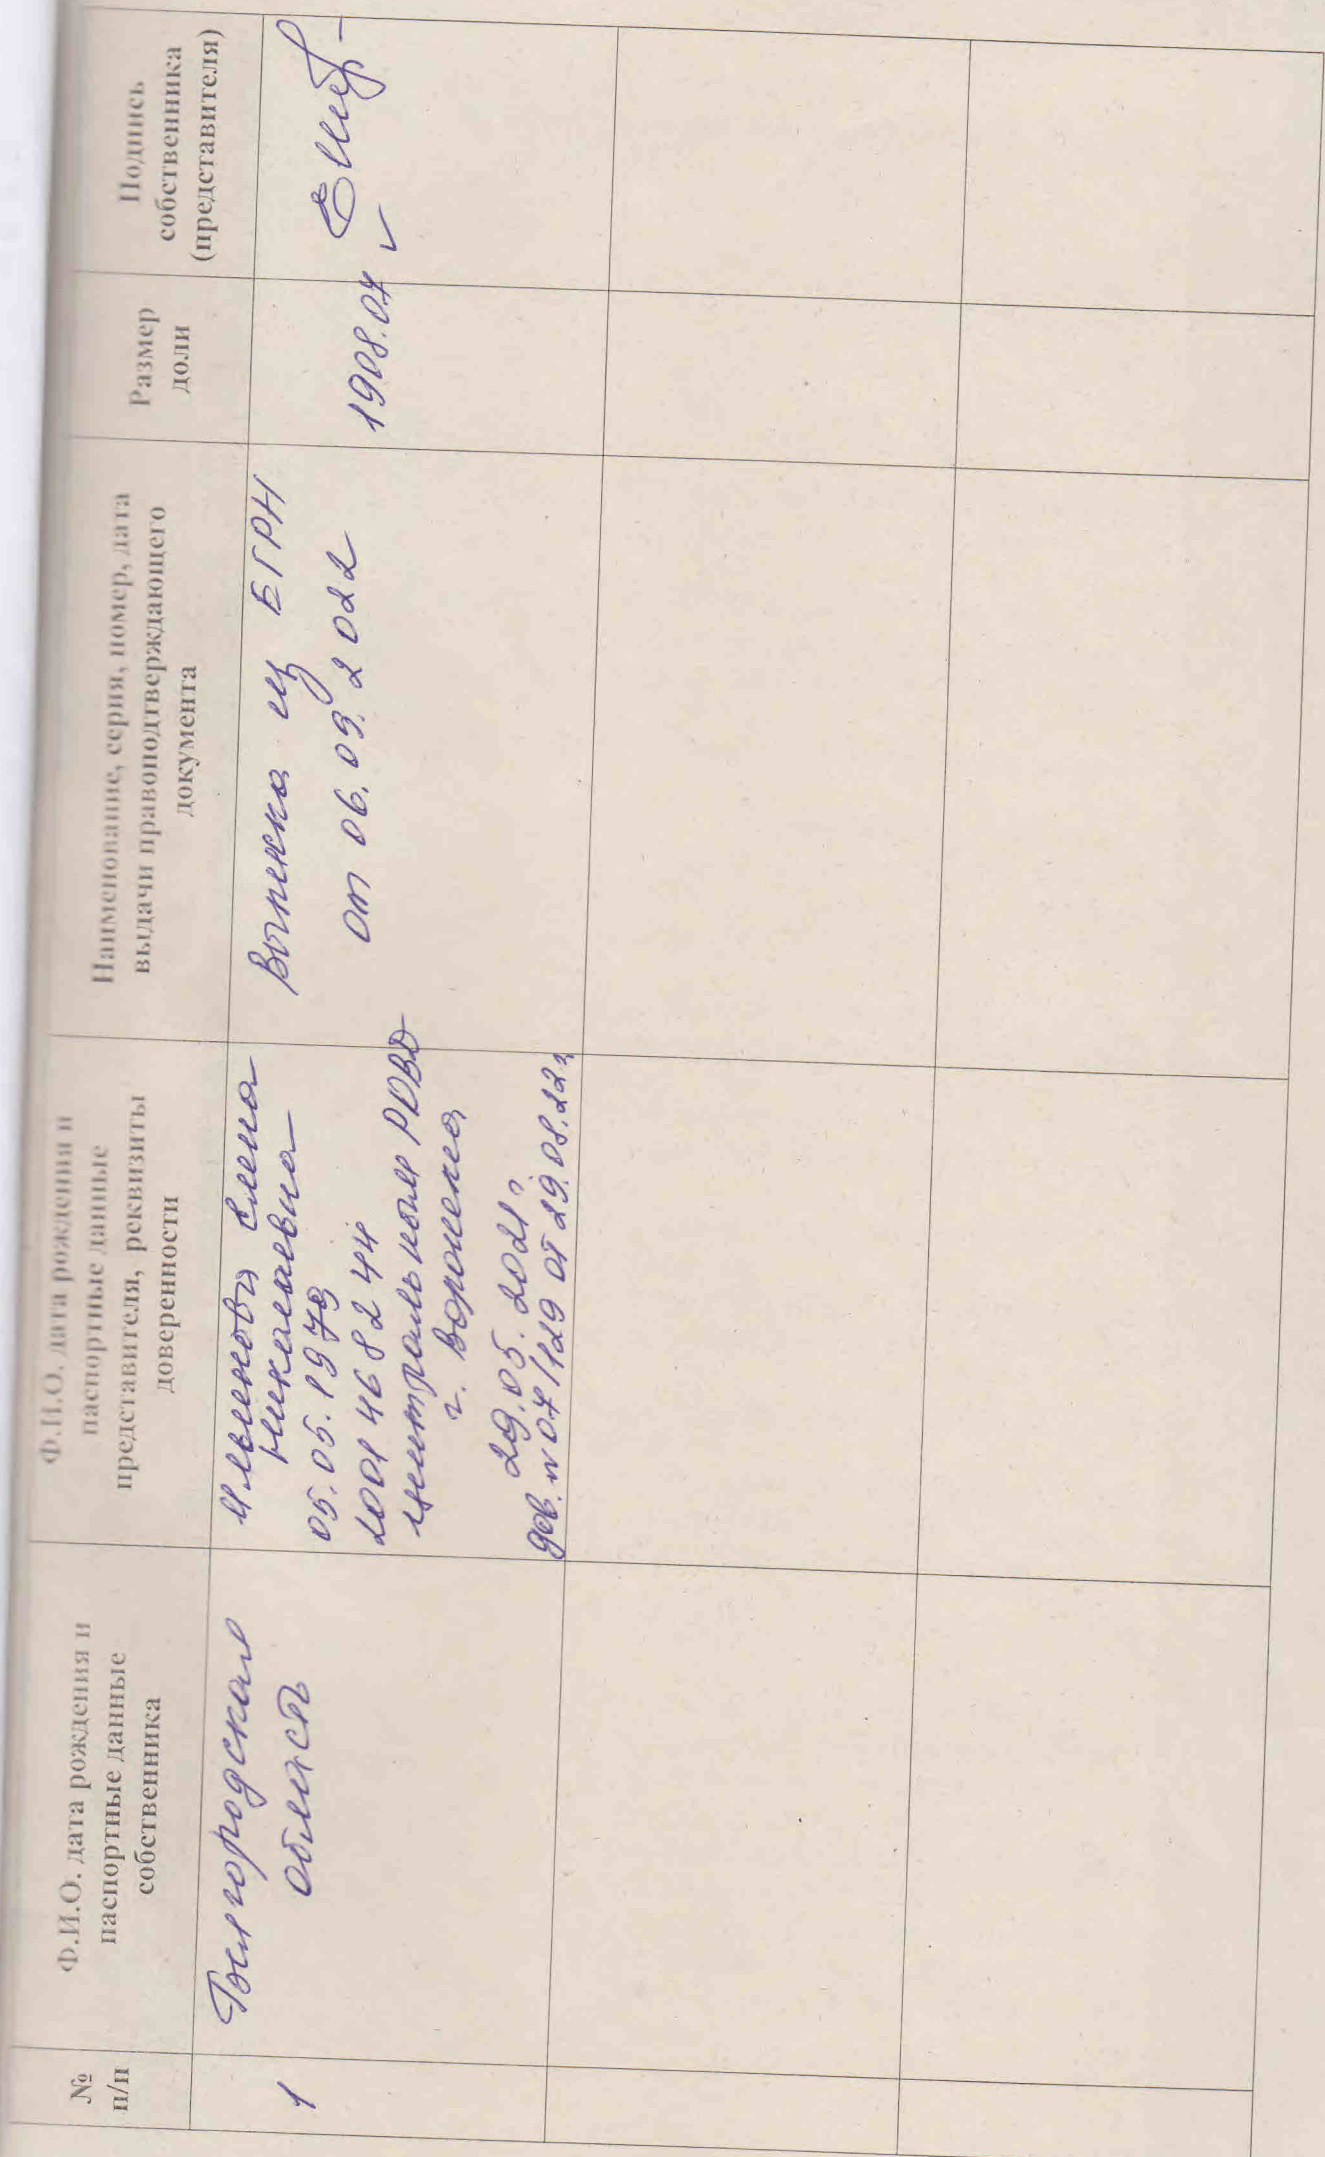 №
п/п
Ф.И.О. дата рождения и
паспортные данные
собственника
Ф.И.О. дата рождения и
паспортные данные
представителя, реквизиты
доверенности
Наименование, серия, номер, дата
выдачи правоподтверждающего
документа
Размер
доли
Подпись
собственника
(представителя)
1
Белгородская
область
Ильинова Елена
Николаевна
05.05.1979
2001 468244
Центральным РОВД
г. Воронежа
29.05.2021г
дов. № 07/129 от 29.08.22г
Выписка из ЕГРН
от 06.09.2022
1908.04